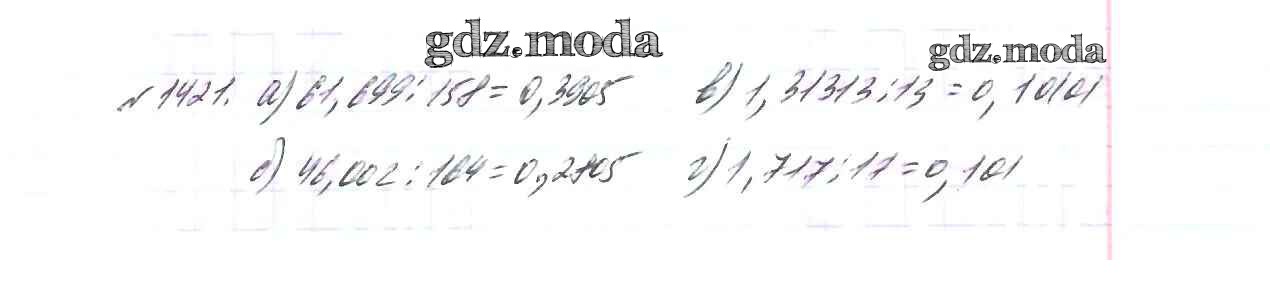 gdz.moda
gdz.moda
№1421. а) 61,699:158=0,3905 в) 1,31313:13=0,10101
б) 46,002:164=0,2805 г) 1,717:17=0,101